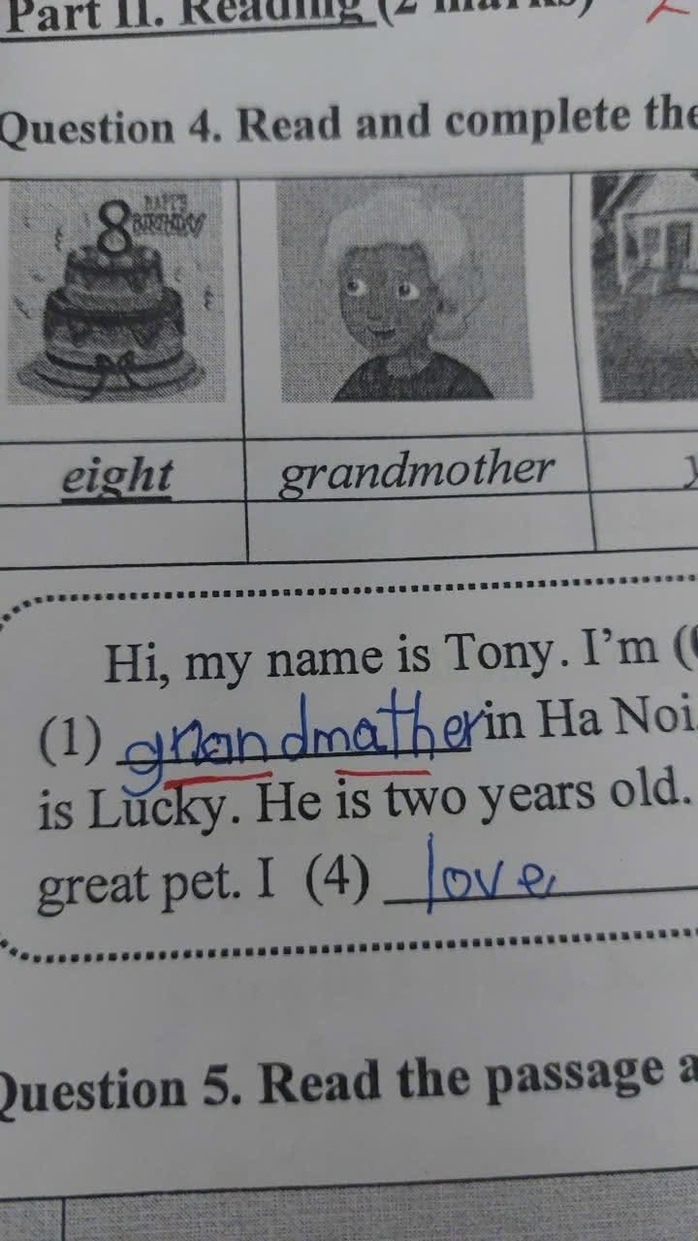 Part II. Reading (2 marks)
Question 4. Read and complete the
8 HAPPY
BIRTHDAY
eight grandmother
Hi, my name is Tony. I'm (
(1) grnandmather in Ha Noi.
is Lucky. He is two years old.
great pet. I (4) love
Question 5. Read the passage a